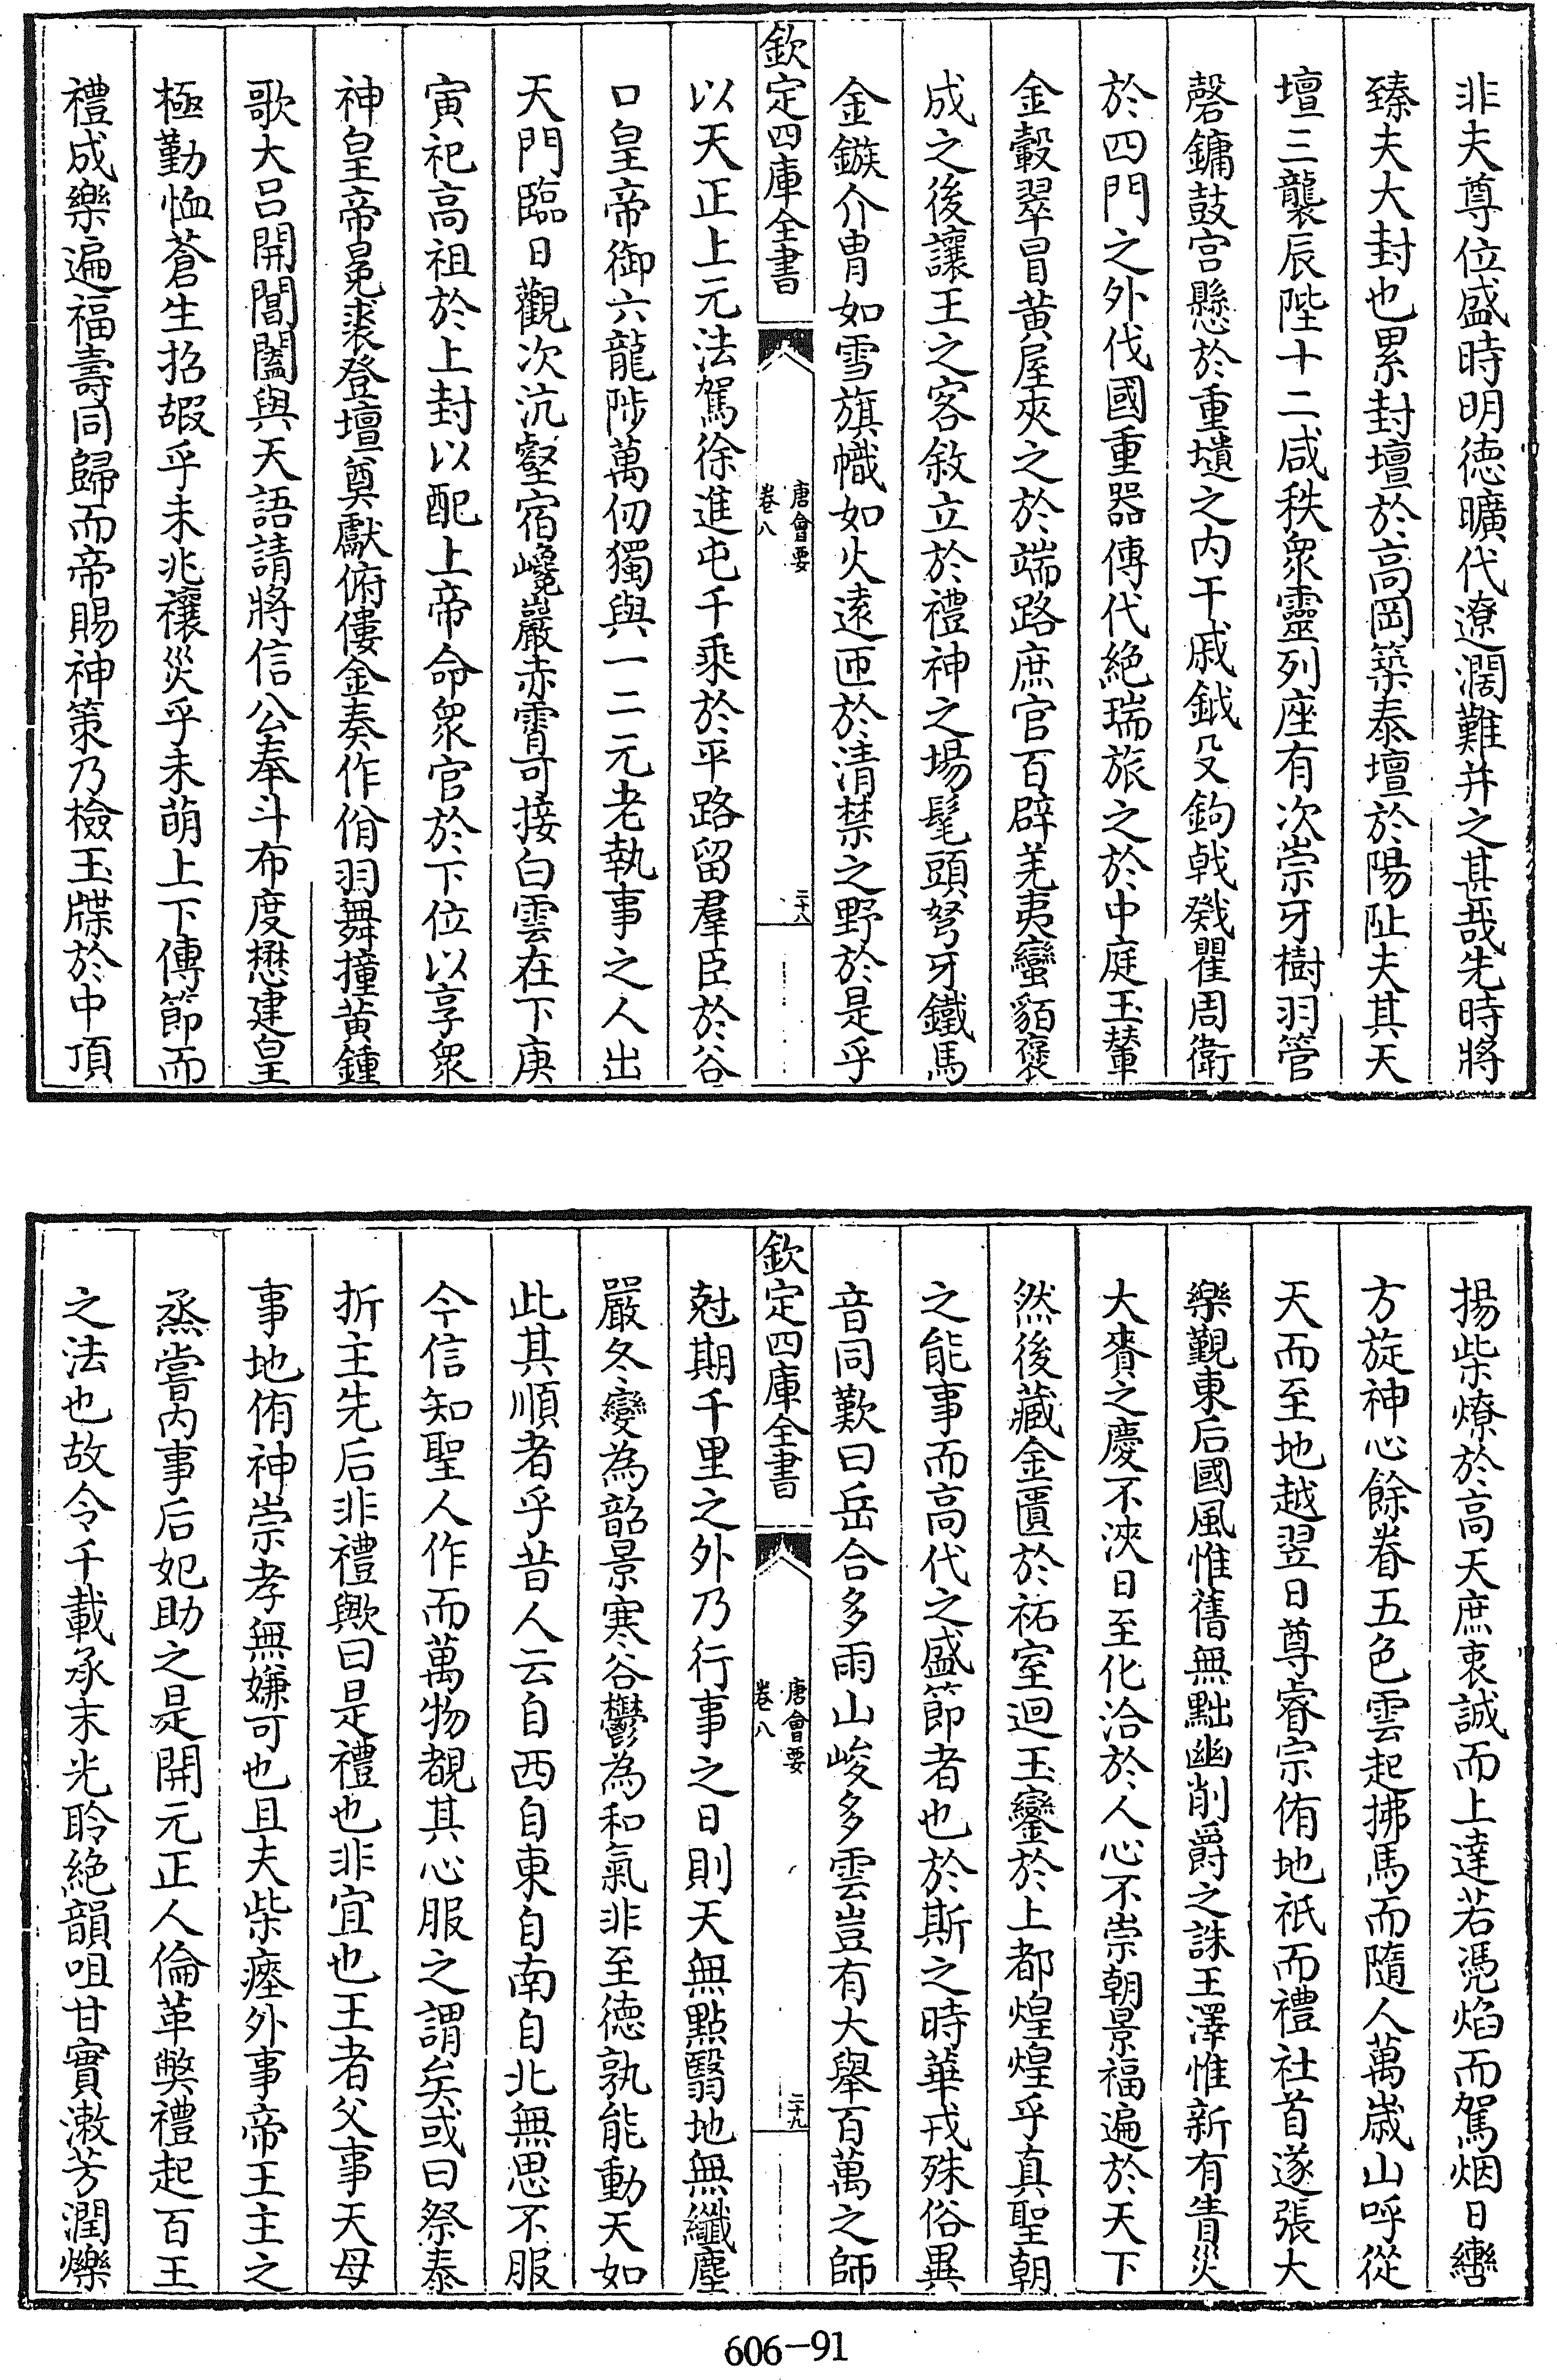 非夫尊位盛時明徳曠代遼濶難并之甚哉先時將
臻夫大封也累封壇於高岡築泰壇於陽阯夫其天
壇三襲辰陛十二咸秩衆靈列座有次崇牙樹羽管
磬鏞鼓宫懸於重壝之内干戚鉞殳鉤戟戣瞿周衛
於四門之外伐國重器傳代絶瑞旅之於中庭玉輦
金轂翠冒黄屋夾之於端路庶官百辟羌夷蠻貊褒
成之後讓王之客敘立於禮神之場髦頭弩牙鐵馬
金鏃介胄如雪旗幟如火逺匝於清禁之野於是乎
欽定四庫全書
唐會要
卷八
二十八
以天正上元法駕徐進屯千乘於平路留羣臣於谷
口皇帝御六龍陟萬仞獨與一二元老執事之人出
天門臨日觀次沆壑宿巉巖赤霄可接白雲在下庚
寅祀高祖於上封以配上帝命衆官於下位以享衆
神皇帝冕裘登壇奠獻俯僂金奏作佾羽舞撞黄鍾
歌大吕開閶闔與天語請將信公奉斗布度懋建皇
極勤恤蒼生招嘏乎未兆禳災乎未萌上下傳節而
禮成樂遍福壽同歸而帝賜神策乃檢玉牒於中頂
揚柴燎於高天庶衷誠而上達若憑焰而駕烟日轡
方旋神心餘眷五色雲起拂馬而隨人萬嵗山呼從
天而至地越翌日尊睿宗侑地祇而禮社首遂張大
樂覲東后國風惟舊無黜幽削爵之誅王澤惟新有眚災
大賚之慶不浹日至化洽於人心不崇朝景福遍於天下
然後藏金匱於祏室迴玉鑾於上都煌煌乎真聖朝
之能事而高代之盛節者也於斯之時華戎殊俗異
音同歎曰岳合多雨山峻多雲豈有大舉百萬之師
欽定四庫全書
唐會要
卷八
二十九
尅期千里之外乃行事之日則天無點翳地無纖塵
嚴冬變為韶景寒谷鬱為和氣非至徳孰能動天如
此其順者乎昔人云自西自東自南自北無思不服
今信知聖人作而萬物覩其心服之謂矣或曰祭泰
折主先后非禮歟曰是禮也非宜也王者父事天母
事地侑神崇孝無嫌可也且夫柴瘞外事帝王主之
烝嘗内事后妃助之是開元正人倫革弊禮起百王
之法也故令千載承末光聆絶韻咀甘實漱芳潤爍
606-91